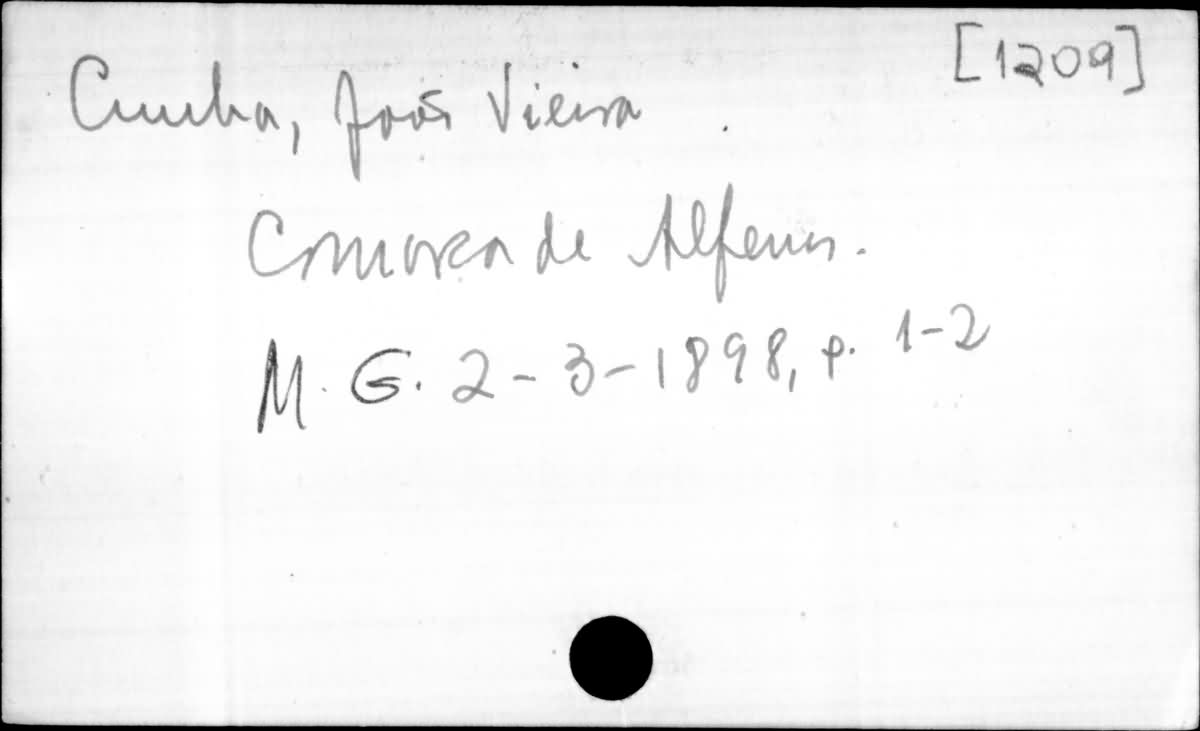 [1209]
Cunha, João Vieira
Comarca de Alfenas.
M. G. 2-3-1898, p. 1-2